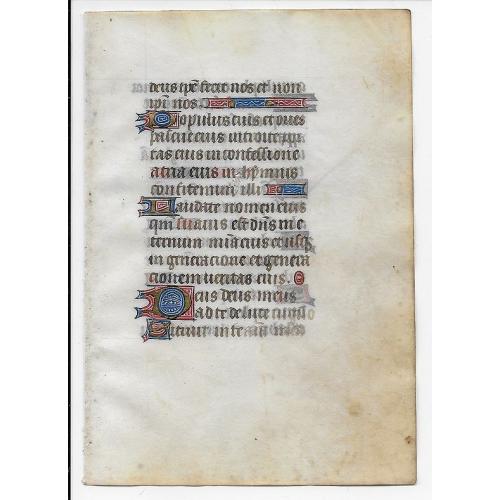 deus ipe fecit nos et non
ipi nos.
Populus eius et oues
pascue eius introite por
tas eius in confessione
atria eius in hymnis
confitemini illi
Laudate nomen eius
qm suauis est dns in e
ternum mia eius et usq
in generacione et genera
cionem ueritas eius.
Deus deus meus
ad te de luce uigilo
Sitiuit in te